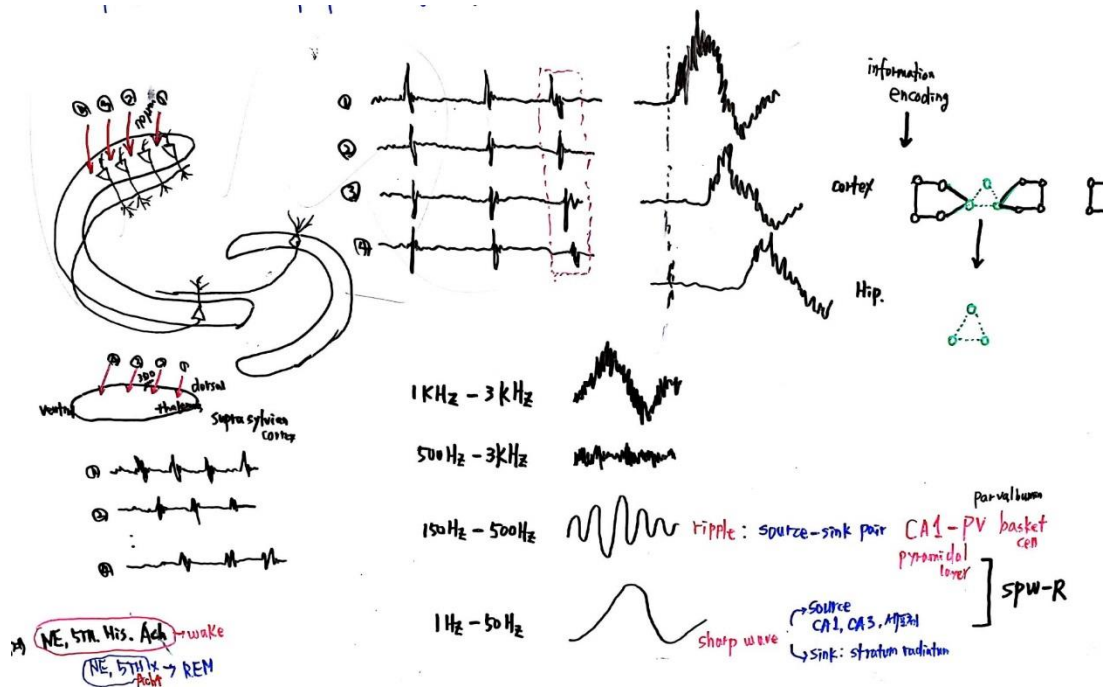 ④ ③ ② ①
① 
② 
③ 
④ 
information
encoding
cortex
Hip.
④ ③ ② ①
300
dorsal
ventral
thalamus
suprasylvian
cortex
①
②
⋮
④
1KHz - 3KHz
500Hz - 3KHz
150Hz - 500Hz
ripple : source-sink pair
parvalbumin
CA1-PV basket
cell
pyramidal
layer
1Hz - 50Hz
sharp wave
source
CA1, CA3, 세포체
sink: stratum radiatum
SPW-R
NE, 5TH. His. Ach → wake
NE, 5TH x → REM
Ach↑